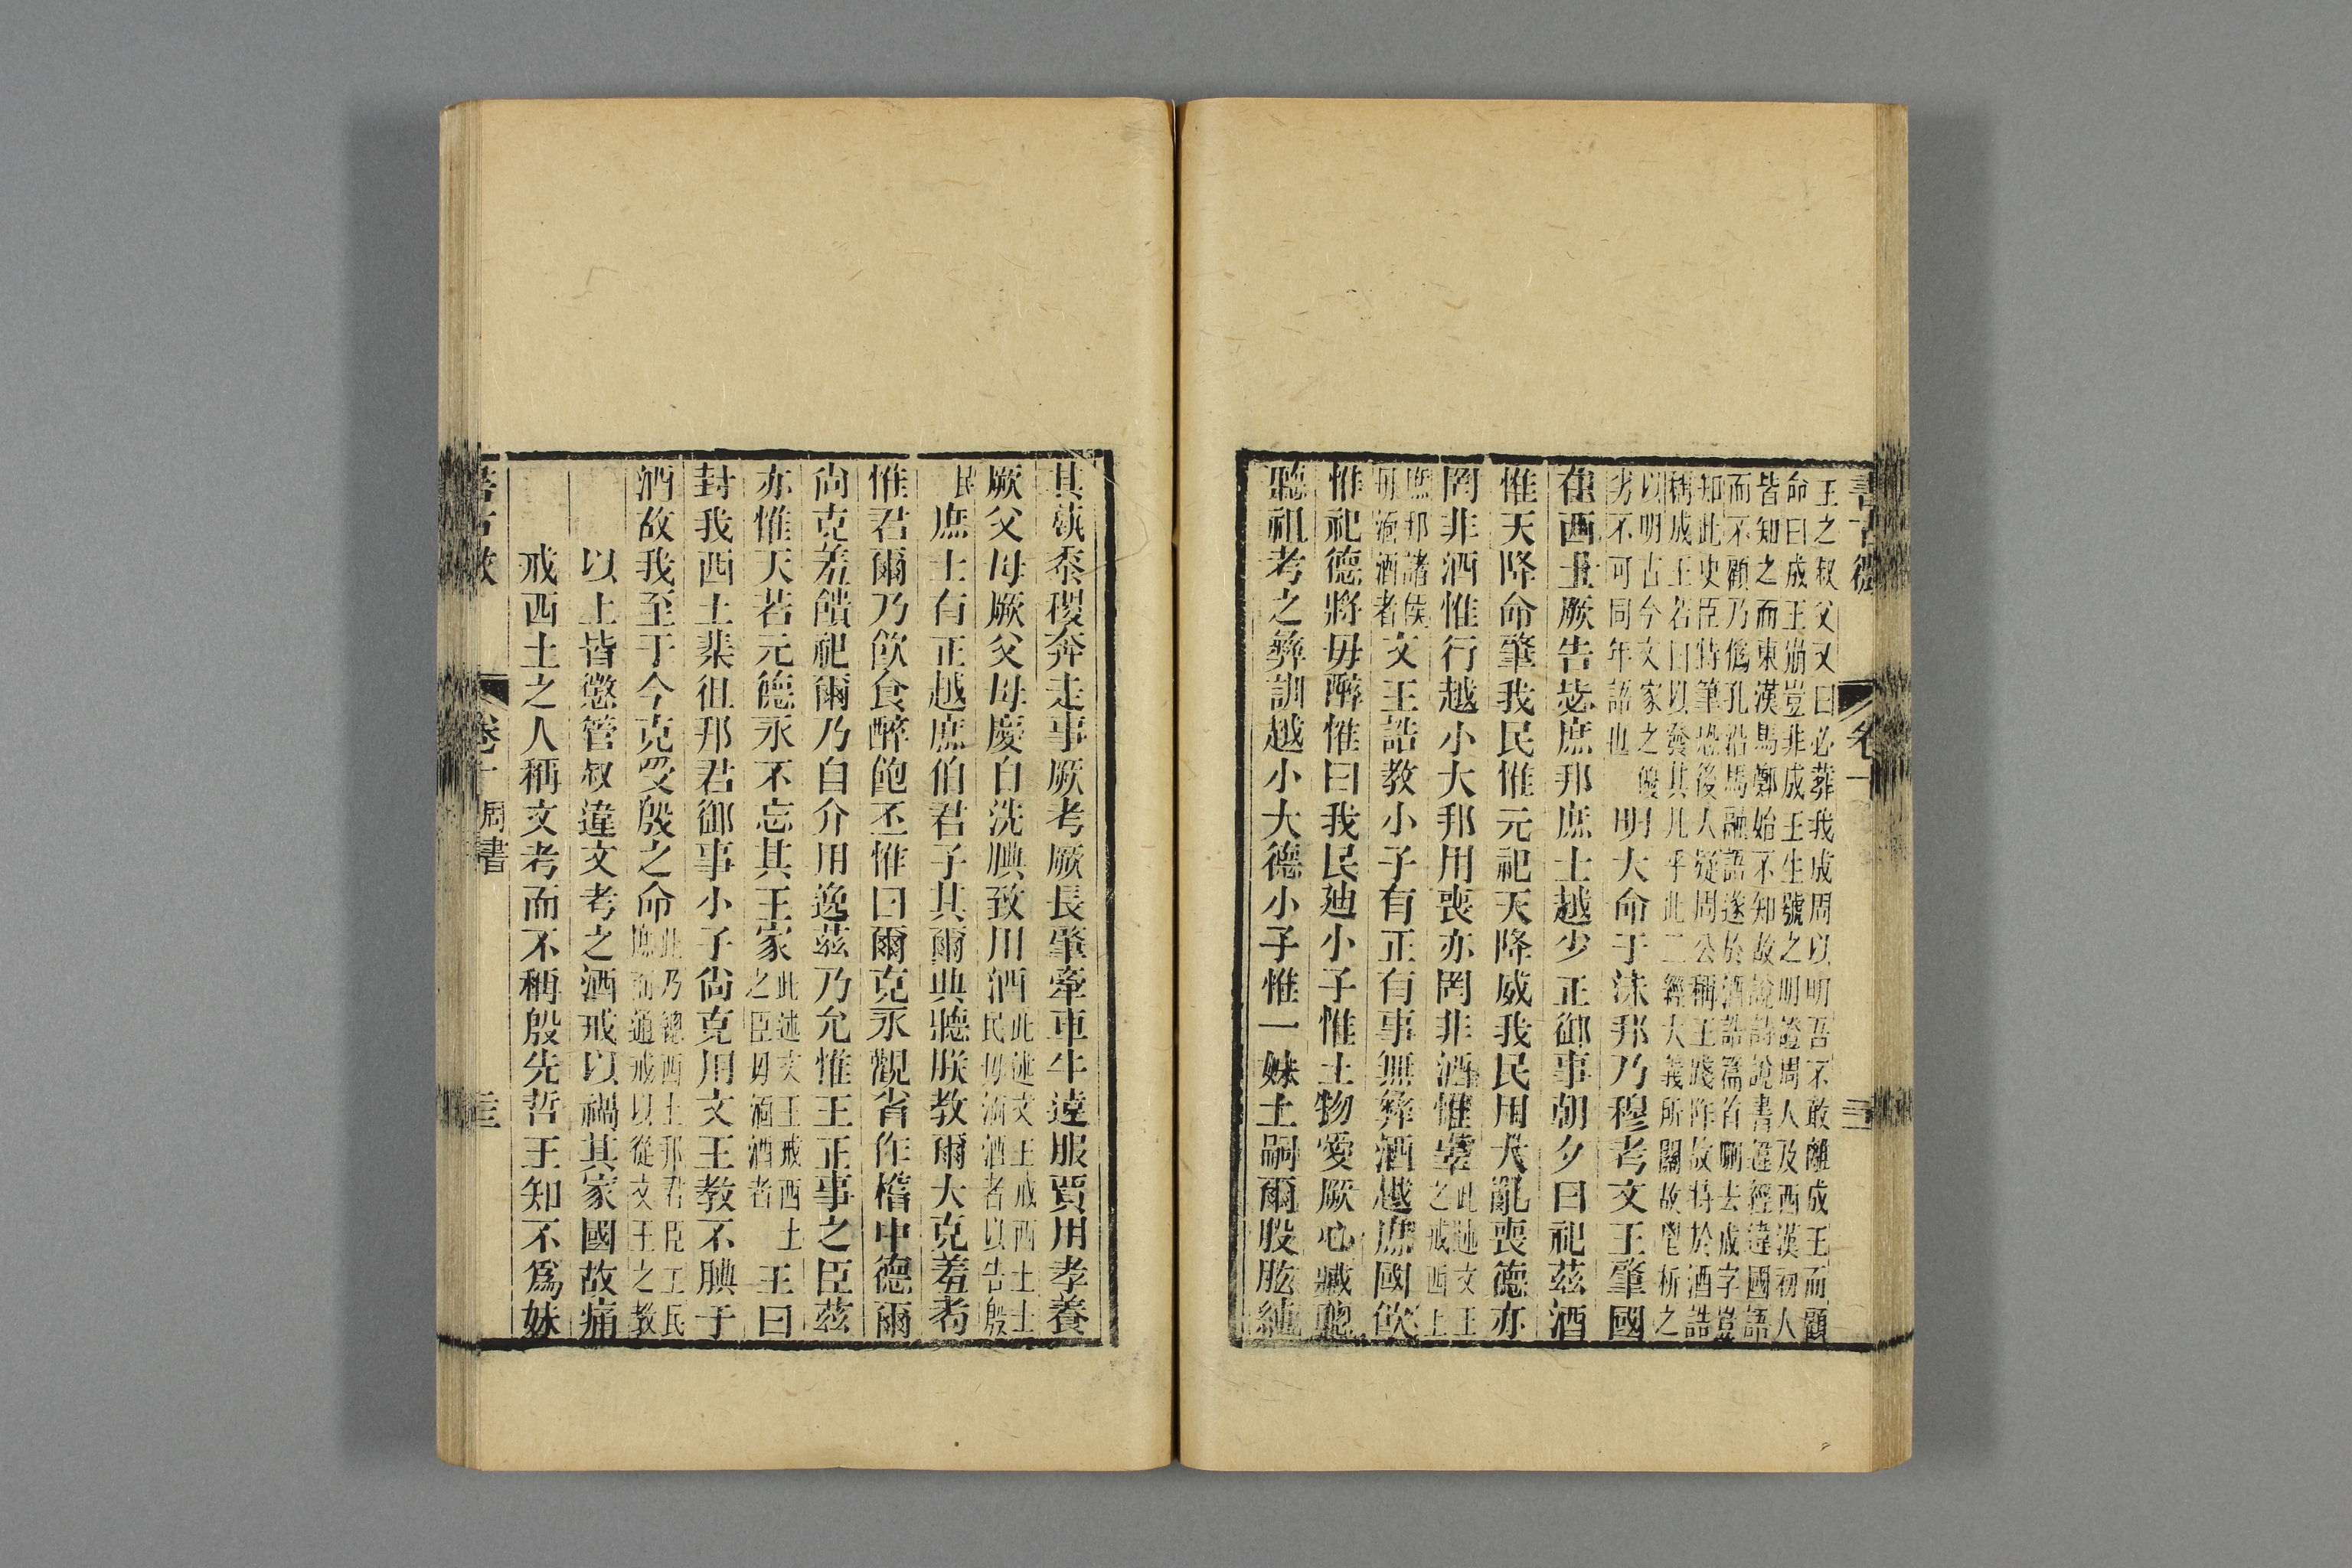 書古微 卷十 三
王之叔父又曰必葬我成周以明吾不敢離成王而顧
命曰成王崩豈非成王生號之明證周人及西漢初人
皆知之而東漢馬鄭始不知故說詩說書違經違國語
而不顧乃僞孔沿馬融語遂於酒誥篇首刪去成字豈
知此史臣特筆恐後人疑周公稱王踐阼故特於酒誥
稱成王若曰以發其凡乎此二經大義所關故析之
以明古今文家之優
劣不可同年語也
明大命于沬邦乃穆考文王肇國
在西土厥告毖庶邦庶士越少正御事朝夕曰祀茲酒
惟天降命肇我民惟元祀天降威我民用大亂喪德亦
罔非酒惟行越小大邦用喪亦罔非酒惟辜
此述文王
之戒西土
庶邦諸侯
毋湎酒者
文王誥教小子有正有事無彝酒越庶國飲
惟祀德將毋醉惟曰我民廸小子惟土物愛厥心臧聰
聽祖考之彝訓越小大德小子惟一妹土嗣爾股肱純
其蓺黍稷奔走事厥考厥長肇牽車牛遠服賈用孝養
厥父母厥父母慶自洗腆致用酒
此述文王戒西土士
民毋湎酒者以告殷
民
庶士有正越庶伯君子其爾典聽朕教爾大克羞耇
惟君爾乃飲食醉飽丕惟曰爾克永觀省作稽中德爾
尚克羞饋祀爾乃自介用逸茲乃允惟王正事之臣茲
亦惟天若元德永不忘其王家
此述文王戒西土
之臣毋湎酒者
王曰
封我西土棐徂邦君御事小子尚克用文王教不腆于
酒故我至于今克受殷之命
此乃總西土邦君臣工民
庶而通戒以從文王之教
以上皆懲管叔違文考之酒戒以禍其家國故痛
戒西土之人稱文考而不稱殷先哲王知不爲妹
書古微 卷十 周書